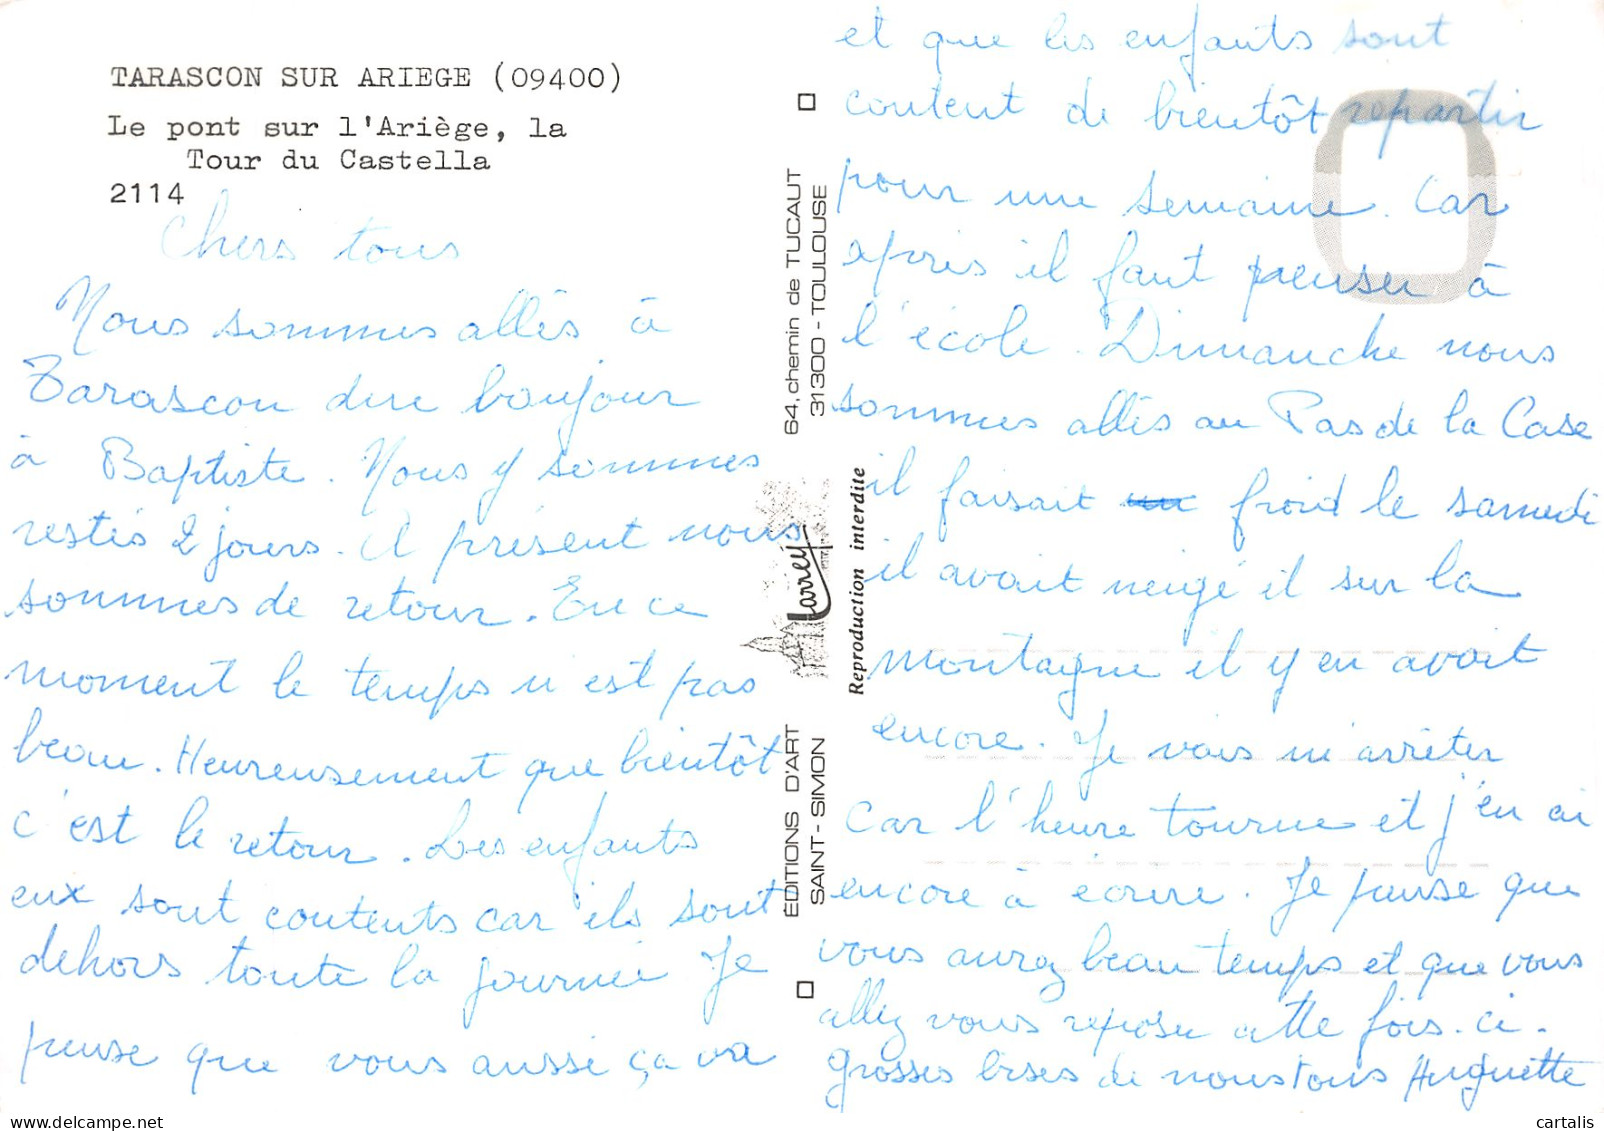 TARASCON SUR ARIEGE (09400)
Le pont sur l'Ariège, la
Tour du Castella
2114
Chers tous
Nous sommes allés à
Tarascon dire bonjour
à Baptiste. Nous y sommes
restés 2 jours. A présent nous
sommes de retour. En ce
moment le temps n est pas
beau. Heureusement que bientôt
c'est le retour. Les enfants
eux sont contents car ils sont
dehors toute la journée Je
pense que vous aussi ça va
et que les enfants sont
content de bientôt repartir
pour une semaine. Car
après il faut penser à
l'école. Dimanche nous
sommes allés au Pas de la Case
il faisait froid le samedi
il avait neigé et sur la
montagne il y en avait
encore. Je vais m'arrêter
car l'heure tourne et j'en ai
encore à écrire. Je pense que
vous aurez beau temps et que vous
allez vous reposer cette fois-ci.
grosses bises de nous tous Huguette
64, chemin de TUCAUT
31300 - TOULOUSE
Larrey
Reproduction interdite
ÉDITIONS D'ART
SAINT-SIMON
www.delcampe.net
cartalis